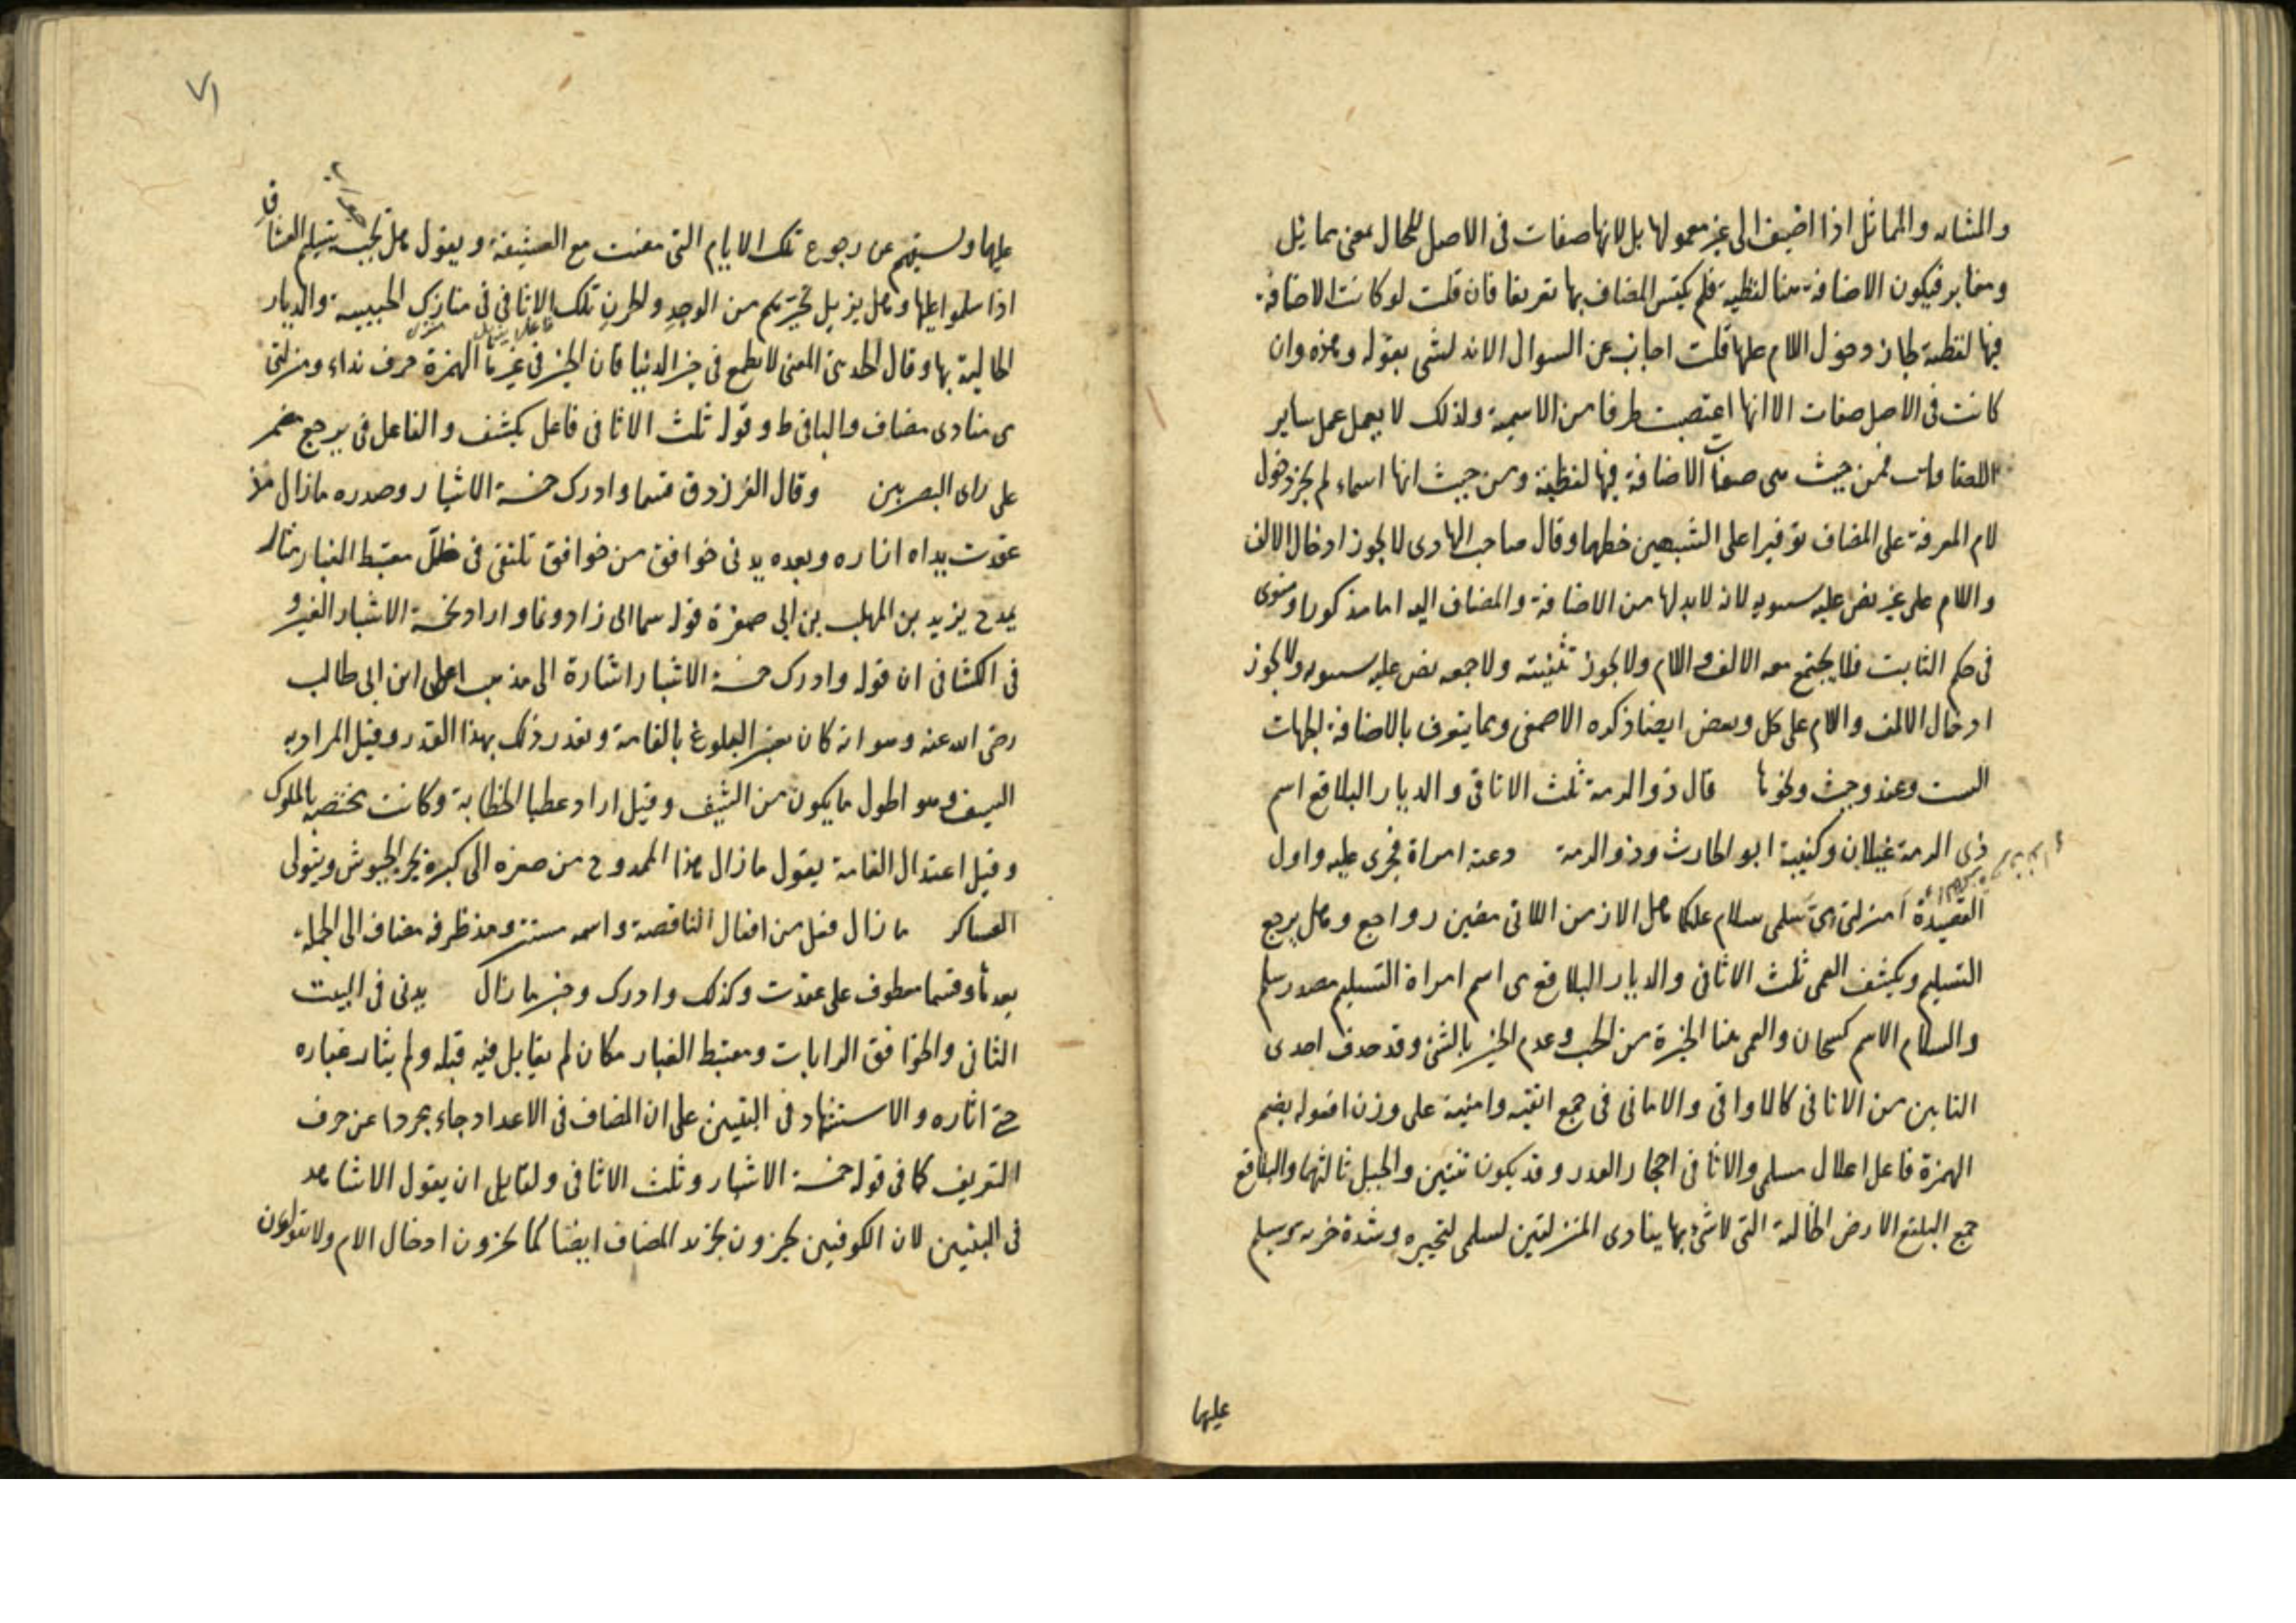 والمشابه والمماثل اذا اضيف الى غير معمولها بل لانها صفات فى الاصل للحال بمعنى يماثل
ومغاير فيكون الاضافة هنا لفظية فلم يكتس المضاف بها تعريفا فان قلت لو كانت الاضافة
فيها لفظية لجاز دخول اللام عليها قلت اجاب عن السوال الاندلسى بقوله وهذه وان
كانت فى الاصل صفات الا انها اعتصبت طرفا من الاسمية ولذلك لا يعمل عمل ساير
الصفات فمن حيث هى صفات الاضافة فيها لفظية ومن حيث انها اسماء لم يجز دخول
لام المعرفة على المضاف توفيرا على الشبهين خطهما وقال صاحب الهادى لا يجوز ادخال الالف
واللام على غير نص عليه سيبويه لانه لا بد لها من الاضافة والمضاف اليه اما مذكورا ومنوى
فى حكم الثابت فلا يجتمع معه الالف واللام ولا يجوز تثنيته ولا جمعه نص عليه سيبويه ولا يجوز
ادخال الالف واللام على كل وبعض ايضا ذكره الاصمعى ومما يتعرف بالاضافة الجهات
الست وعند وحيث ونحوها قال ذو الرمة ثلث الاثافى والديار البلاقع اسم
ذى الرمة غيلان وكنيته ابو الحارث وذو الرمة وعنه امراة فجرى عليه واول
القصيدة امنزلتى مى سلمى سلام عليكما هل الازمن اللاتى مضين رواجع وهل يرجع
التسليم ويكشف العمى ثلث الاثافى والديار البلاقع مى اسم امراة التسليم مصدر سلم
والسلام الاسم كسحان والعمى هنا الحيرة من الحب وعدم الخبر بالشئ وقد حذف احدى
اليابين من الاثافى كالاواقى والامانى فى جمع اثفية وامنية على وزن افعوله بضم
الهمزة فاعل اعلال مسلمى والاثافى احجار القدر وقد يكون ثنتين والجبل ثالثها والبلاقع
جمع البلقع الارض الخالية التى لا شئ بها ينادى المنزلتين لسلمى لتحيره وشدة يسلم
عليها
٧١
عليها وليستفهم عن رجوع تلك الايام التى مضت مع العشيقة ويقول هل يجيب تسليم العشاق
اذا سلموا عليها وهل يزيل تحيرهم من الوجد والحزن تلك الاثافى فى منازل الحبيبة والديار
الخالية بها وقال الحديثى المعنى لا يطمع فى خير الدنيا فان الخير فى غيرها الهمزة حرف نداء ومنزلتى
مى منادى مضاف والباقى ط وقوله ثلث الاثافى فاعل يكشف والفاعل فى يرجع مضمر
على راى البصريين وقال الفرزدق فسما وادرك خمسة الاشبار وصدره مازال مذ
عقدت يداه ازاره وبعده يدنى خوافق من خوافق تلتقى فى ظل معتبط الغبار مثار
يمدح يزيد بن المهلب بن ابى صفرة قوله سما اى زاد ونما واراد بخمسة الاشبار
فى الكشاف ان قوله وادرك خمسة الاشبار اشارة الى مذهب على ابن ابى طالب
رضى الله عنه وهو انه كان يعتبر البلوغ بالقامة ويقدر ذلك بهذا القدر وقيل المراد به
السيف وهو اطول ما يكون من السيف وقيل اراد عصا الخطابة وكانت يختص بالملوك
وقيل اعتدال القامة يقول مازال هذا الممدوح من صغره الى كبره يجر الجيوش ويتولى
العساكر مازال فعل من افعال الناقصة واسمه مستتر ومذ ظرفه مضاف الى الجملة
بعدها وفسما معطوف على عقدت وكذلك وادرك وخبر مازال يدنى فى البيت
الثانى والخوافق الرايات ومعتبط الغبار مكان لم يقابل فيه قبله ولم يثار غباره
حتى اثاره والاستشهاد فى البيتين على ان المضاف فى الاعداد جاء مجردا عن حرف
التعريف كما فى قوله خمسة الاشبار وثلث الاثافى ولقايل ان يقول الاشاهد
فى البيتين لان الكوفيين يجيزون تجريد المضاف ايضا كما يجيزون ادخال اللام ولا يقولون